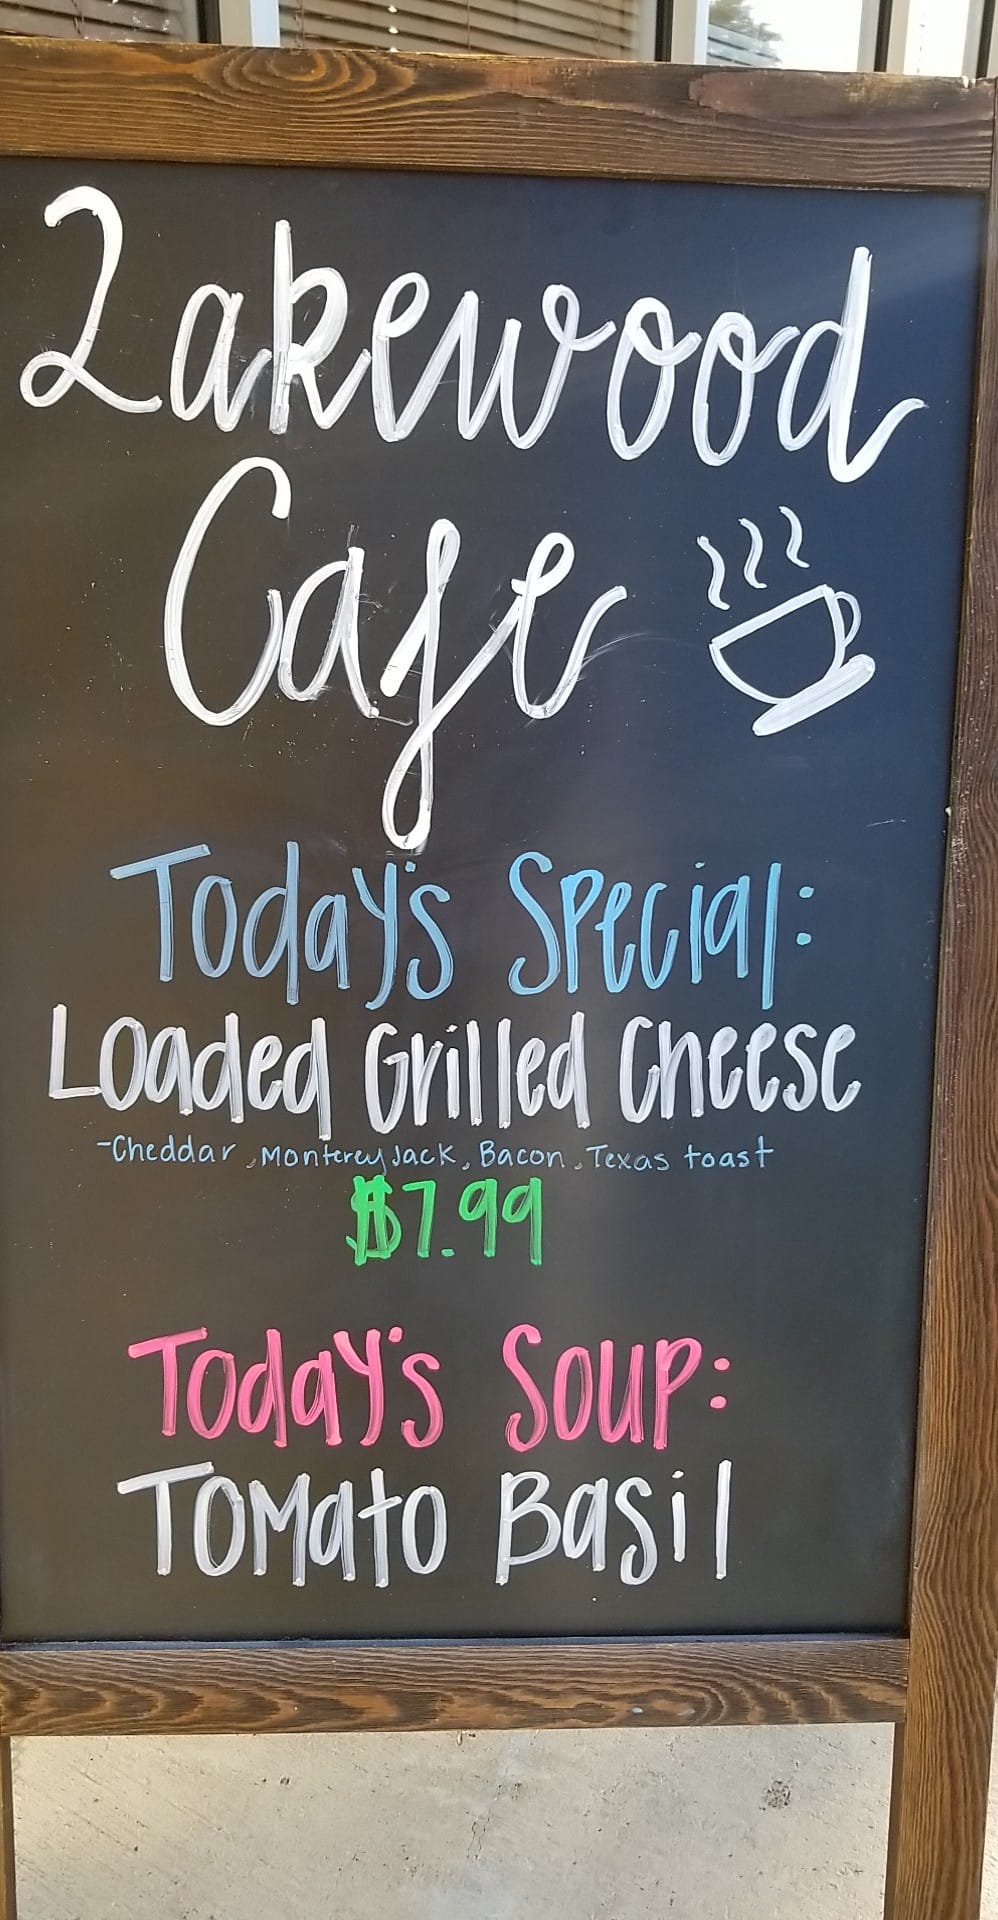 Lakewood
Cafe
Today's Special:
Loaded Grilled Cheese
-Cheddar, Monterey Jack, Bacon, Texas toast
$7.99
Today's Soup:
Tomato Basil